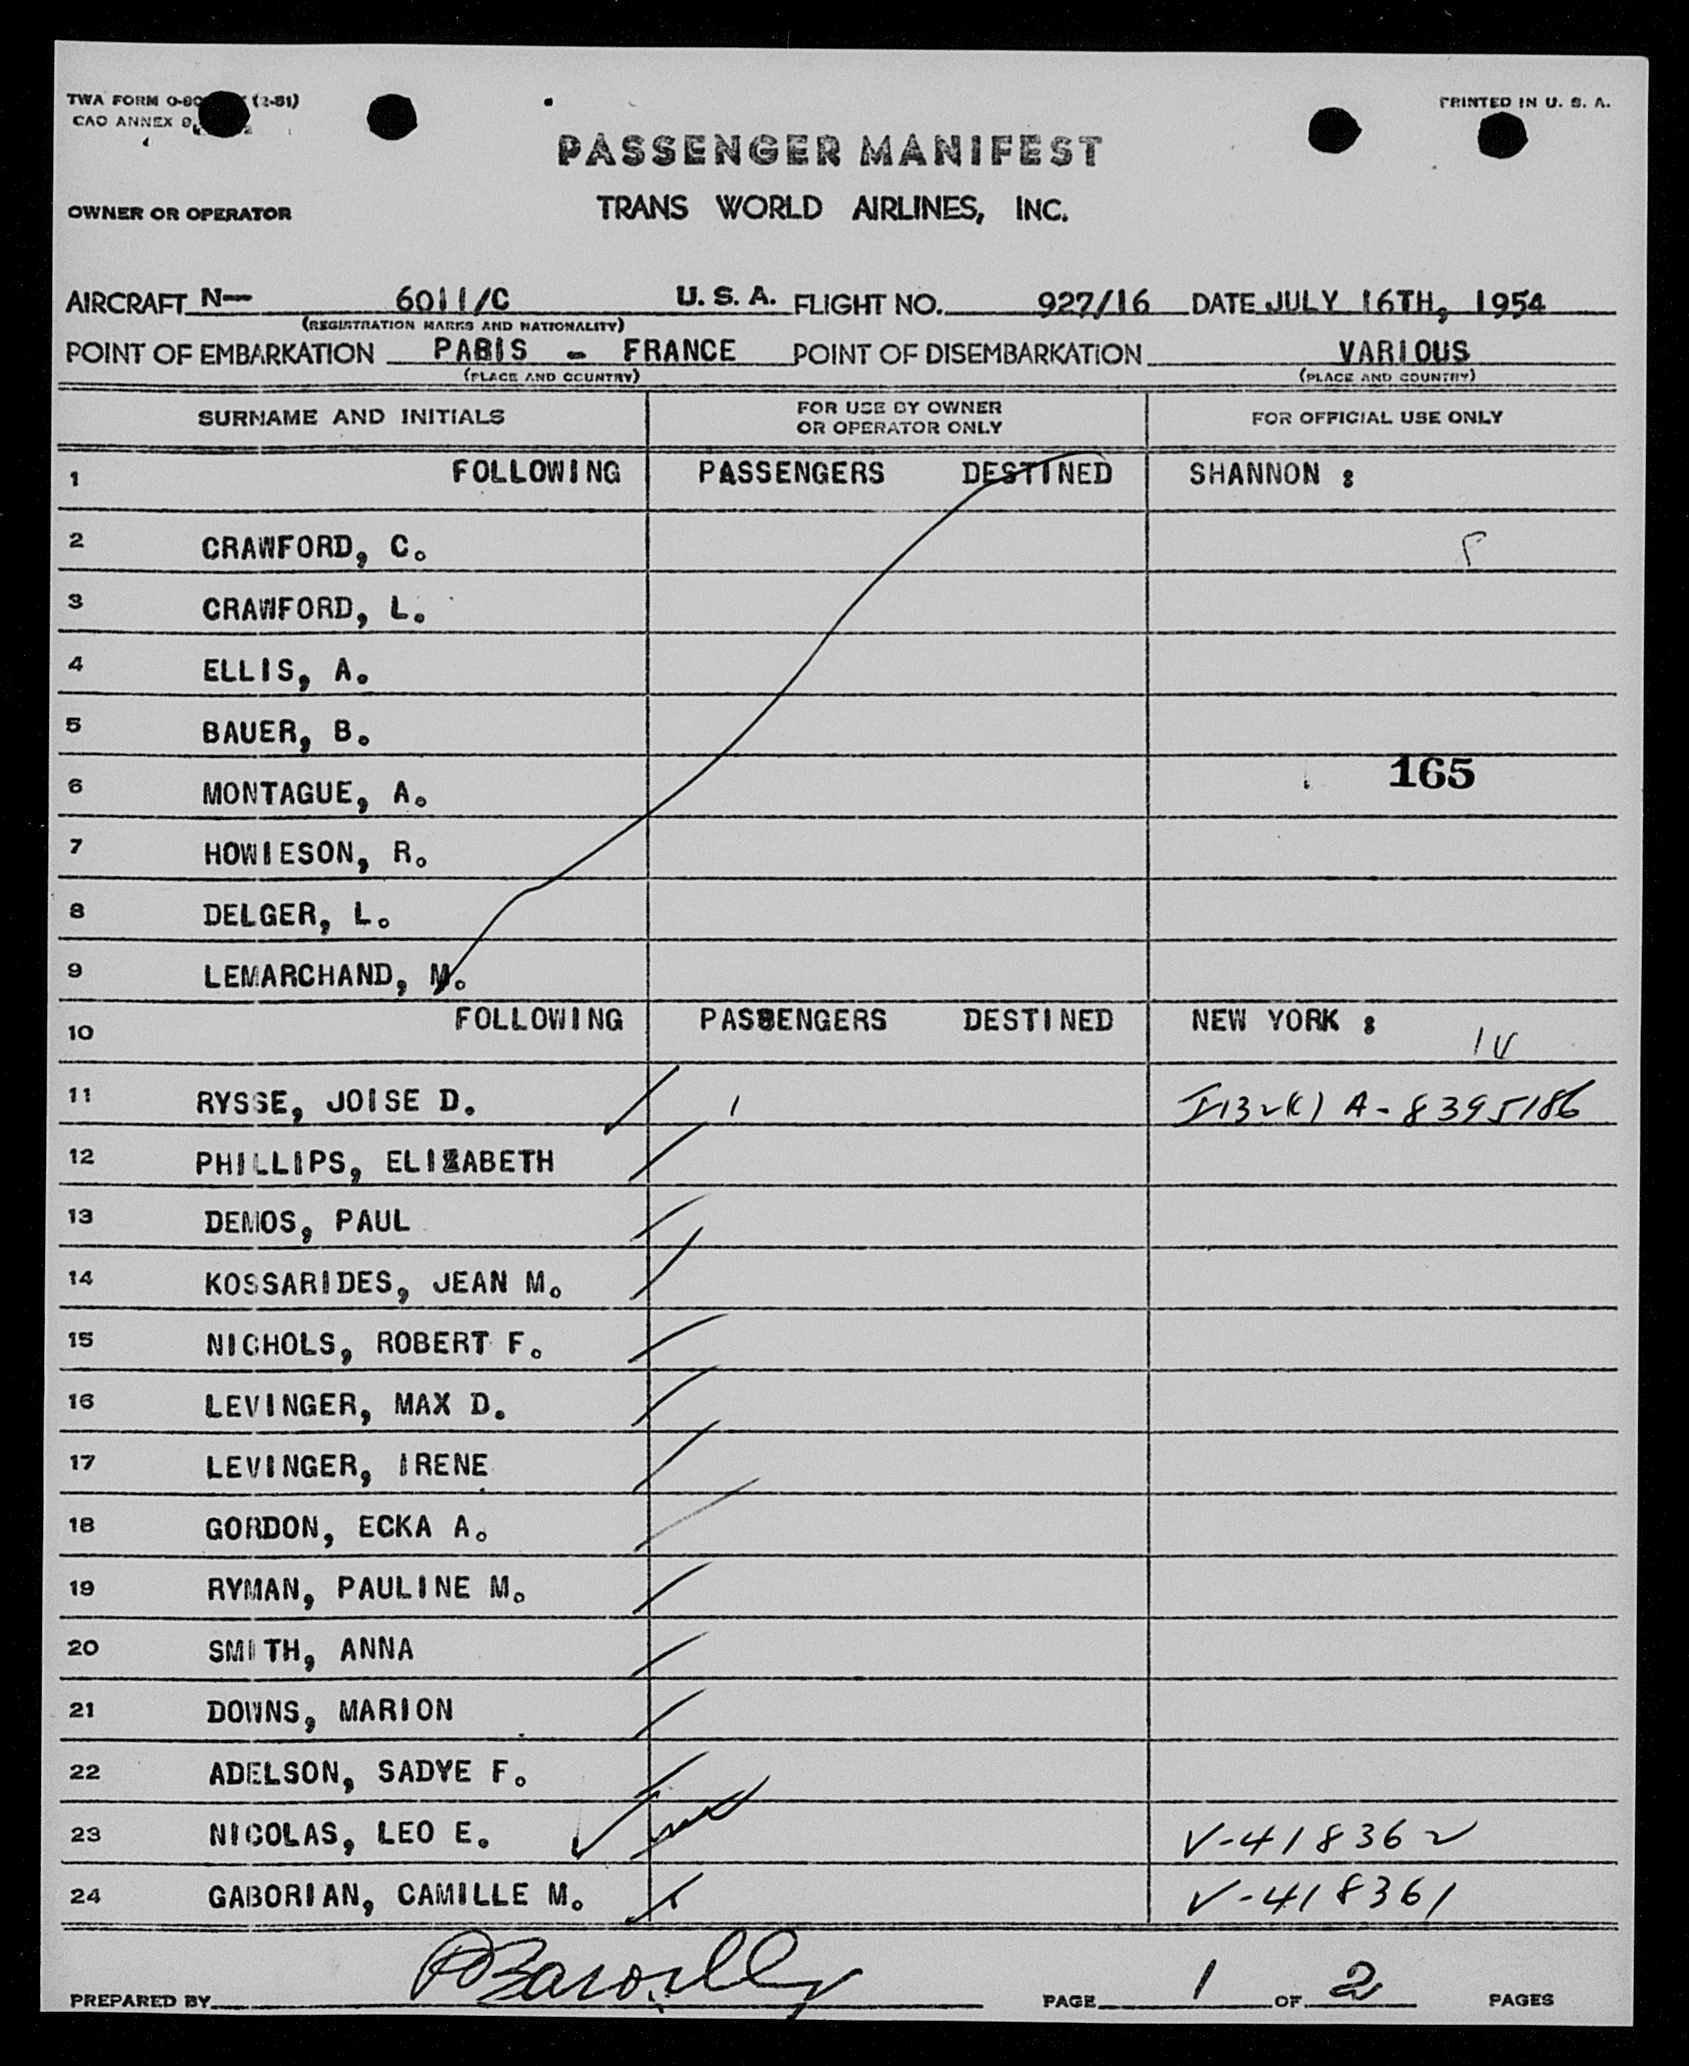 TWA FORM O-80 (2-51)
CAO ANNEX 9,
PRINTED IN U. S. A.
PASSENGER MANIFEST
OWNER OR OPERATOR TRANS WORLD AIRLINES, INC.
AIRCRAFT N— 6011/C U. S. A. FLIGHT NO. 927/16 DATE JULY 16TH, 1954
(REGISTRATION MARKS AND NATIONALITY)
POINT OF EMBARKATION PARIS - FRANCE POINT OF DISEMBARKATION VARIOUS
(PLACE AND COUNTRY) (PLACE AND COUNTRY)
SURNAME AND INITIALS FOR USE BY OWNER OR OPERATOR ONLY FOR OFFICIAL USE ONLY
1 FOLLOWING PASSENGERS DESTINED SHANNON :
2 CRAWFORD, C. 8
3 CRAWFORD, L.
4 ELLIS, A.
5 BAUER, B.
6 MONTAGUE, A. 165
7 HOWIESON, R.
8 DELGER, L.
9 LEMARCHAND, M.
10 FOLLOWING PASSENGERS DESTINED NEW YORK :
11 RYSSE, JOISE D. 1 A-8395186
12 PHILLIPS, ELIZABETH
13 DEMOS, PAUL
14 KOSSARIDES, JEAN M.
15 NICHOLS, ROBERT F.
16 LEVINGER, MAX D.
17 LEVINGER, IRENE
18 GORDON, ECKA A.
19 RYMAN, PAULINE M.
20 SMITH, ANNA
21 DOWNS, MARION
22 ADELSON, SADYE F.
23 NICOLAS, LEO E. V-418362
24 GABORIAN, CAMILLE M. V-418361
PREPARED BY PAGE 1 OF 2 PAGES